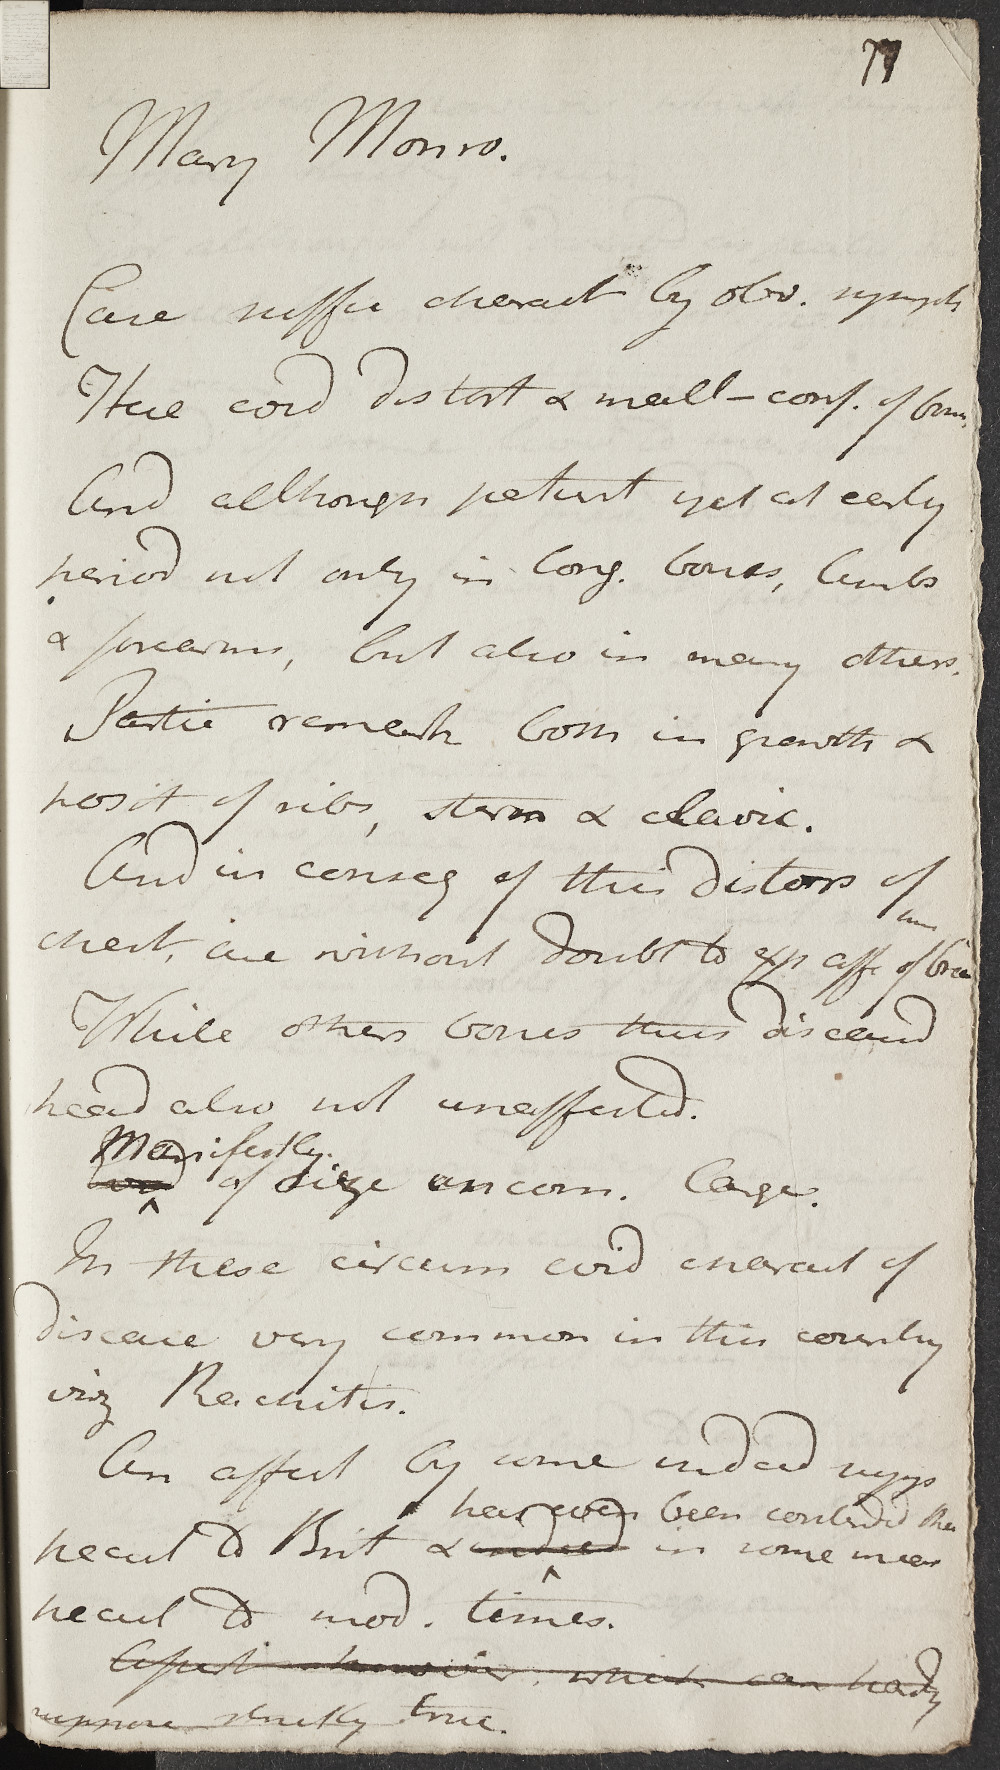 77
Mary Monro.
Case suffic charact by obv. sympts
Here cons distort & mall-conf. of bones
And although patient yet at early
period not only in long. bones, limbs
& forearms, but also in many others.
Partic remark both in growth &
posit of ribs, stern & clavic.
And in conseq of this distors of
chest, are without doubt to exp affs of
While others bones thus diseased
head also not unaffected.
Manifestly.
of size uncom. large.
In these circum cons charact of
disease very common in this country
viz Rachitis.
An affect by some indeed supp
has even been contended that
pecul to Brit & indeed in some meas
pecul to mod. times.
A fact however, which can hardly
suppose strictly true.